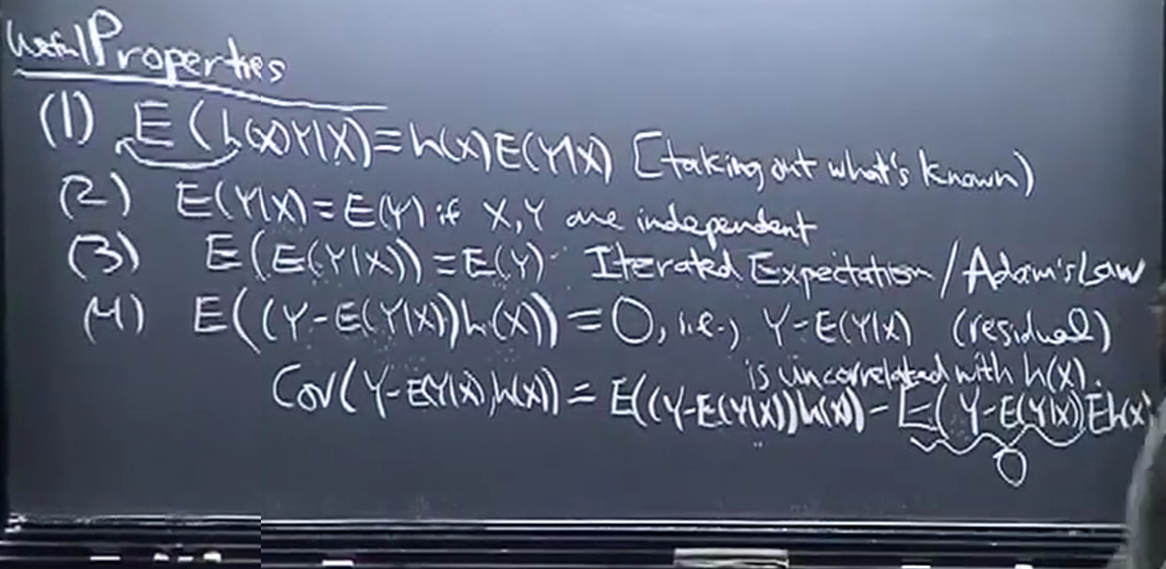 Useful Properties
(1) E(h(X)Y|X) = h(X)E(Y|X) [taking out what's known)
(2) E(Y|X) = E(Y) if X,Y are independent
(3) E(E(Y|X)) = E(Y) Iterated Expectation / Adam's Law
(4) E((Y-E(Y|X))h(X)) = 0, i.e., Y-E(Y|X) (residual)
is uncorrelated with h(X).
Cov(Y-E(Y|X),h(X)) = E((Y-E(Y|X))h(X)) - E(Y-E(Y|X))Eh(X)
0